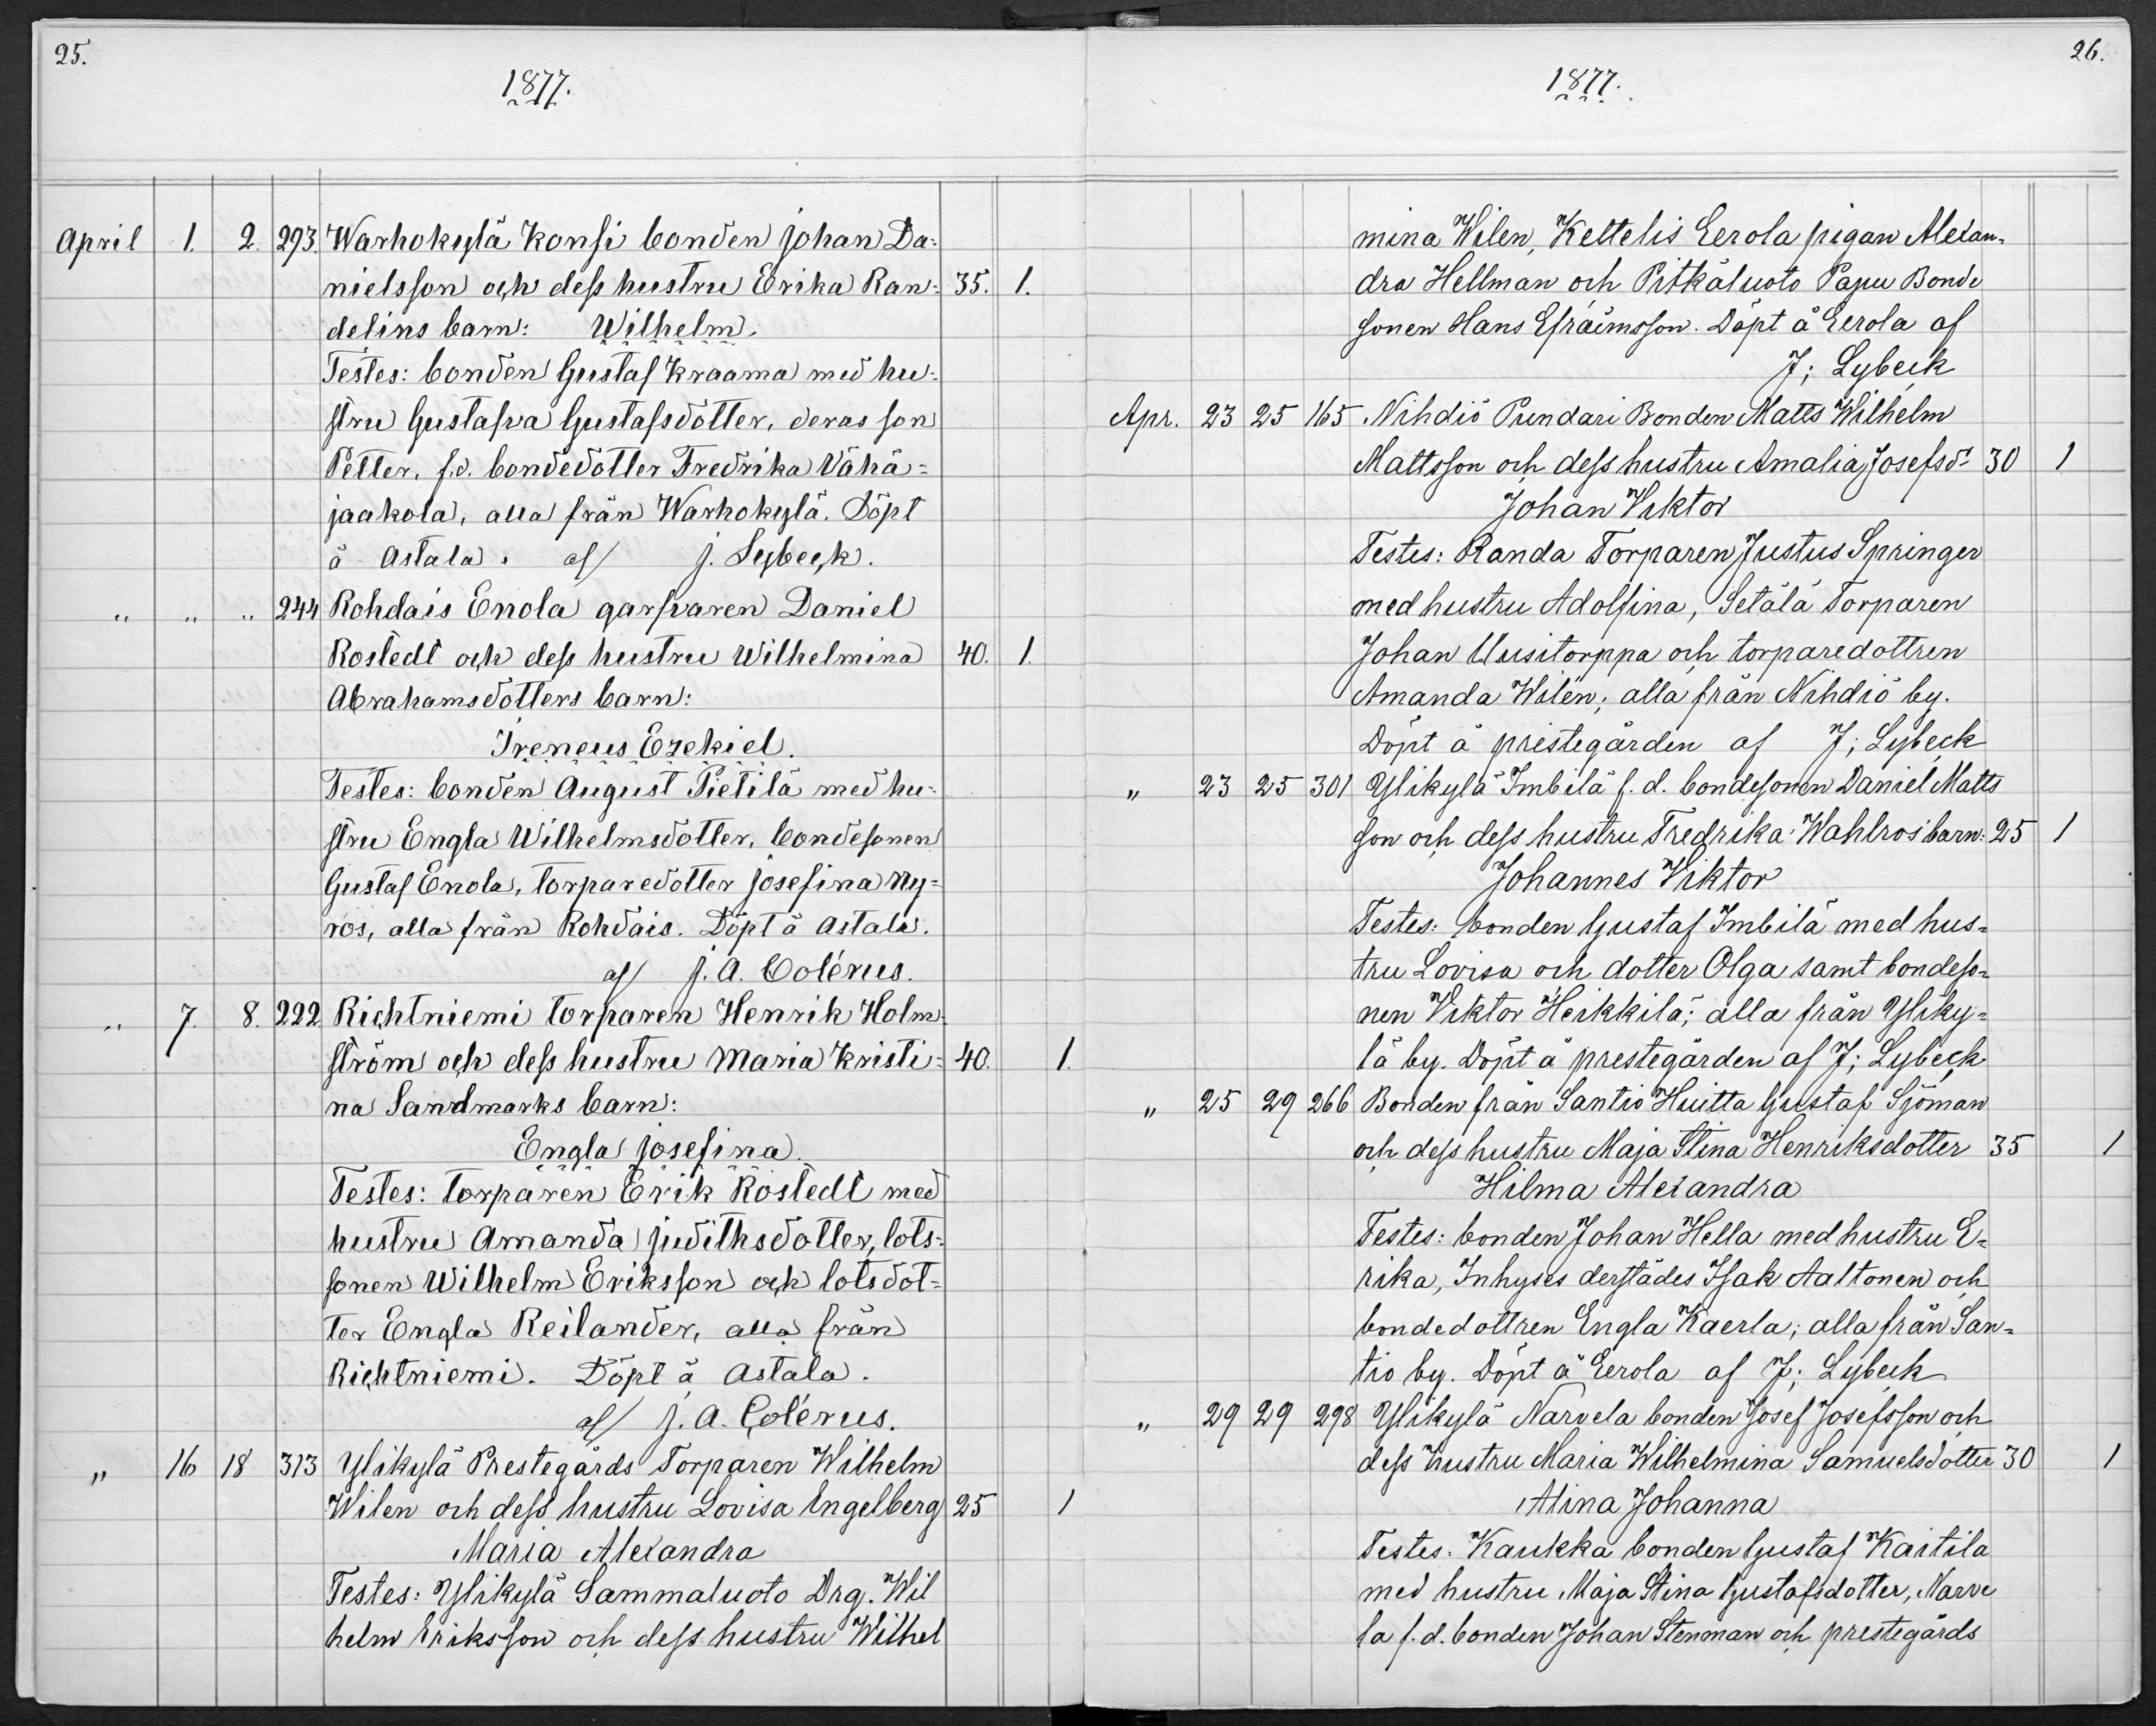 25.
1877.
April 1. 2. 293. Warhokylä Konsi bonden Johan Da-
nielsson och dess hustru Erika Ran- 35. 1.
delins barn: Wilhelm.
Testes: bonden Gustaf Kraama med hu-
stru Gustafva Gustafsdotter, deras son
Petter, f.d. bondedotter Fredrika Vähä-
jaakola, alla från Warhokylä. Döpt
å Astala. af J. Lybeck.
" " " 244 Rohdais Enola garfvaren Daniel
Rostedt och dess hustru Wilhelmina 40. 1.
Abrahamsdotters barn:
Ireneus Ezekiel.
Testes: bonden August Pietilä med hu-
stru Engla Wilhelmsdotter, bondesonen
Gustaf Enola, torparedotter Josefina Ny-
ros, alla från Rohdais. Döpt å Astala.
af J. A. Colérus.
" 7. 8. 222 Richtniemi torparen Henrik Holm-
ström och dess hustru Maria Kristi- 40. 1.
na Sandmarks barn:
Engla Josefina.
Testes: torparen Erik Rostedt med
hustru Amanda Judithsdotter, lots-
sonen Wilhelm Eriksson och lotsdot-
ter Engla Reilander, alla från
Richtniemi. Döpt å Astala.
af J. A. Colérus.
" 16 18 313 Ylikylä Prestegårds Torparen Wilhelm
Wilen och dess hustru Lovisa Engelberg 25 1
Maria Alexandra
Testes: Ylikylä Sammaluoto Drg. Wil
helm Eriksson och dess hustru Wilhel
26.
1877.
mina Wilen, Kettelis Eerola pigan Alexan-
dra Hellman och Pitkäluoto Papu Bonde
sonen Hans Efraimsson. Döpt å Eerola af
J; Lybeck
Apr. 23 25 165 Nihdiö Pundari Bonden Matts Wilhelm
Mattsson och dess hustru Amalia Josefsdr 30 1
Johan Viktor
Testes: Randa Torparen Justus Springer
med hustru Adolfina, Setälä Torparen
Johan Uusitorppa och torparedottren
Amanda Wilén; alla från Nihdiö by.
Döpt å prestegården af J; Lybeck
" 23 25 301 Ylikylä Imbilä f.d. bondesonen Daniel Matts
son och dess hustru Fredrika Wahlros barn: 25 1
Johannes Viktor
Testes: bonden Gustaf Imbilä med hus-
tru Lovisa och dotter Olga samt bondeso-
nen Viktor Heikkilä; alla från Yliky-
lä by. Döpt å prestegården af J; Lybeck
" 25 29 266 Bonden från Santio Huitta Gustaf Sjöman
och dess hustru Maja Stina Henriksdotter 35 1
Hilma Alexandra
Testes: bonden Johan Hella med hustru E-
rika, Inhyses derstädes Isak Aaltonen och
bondedottren Engla Kaerla; alla från San-
tio by. Döpt å Eerola af J; Lybeck
" 29 29 298 Ylikylä Narvela bonden Josef Josefsson och
dess hustru Maria Wilhelmina Samuelsdotter 30 1
Alina Johanna
Testes. Kaukka bonden Gustaf Kaitila
med hustru Maja Stina Gustafsdotter, Narve
la f.d. bonden Johan Stenman och prestegårds